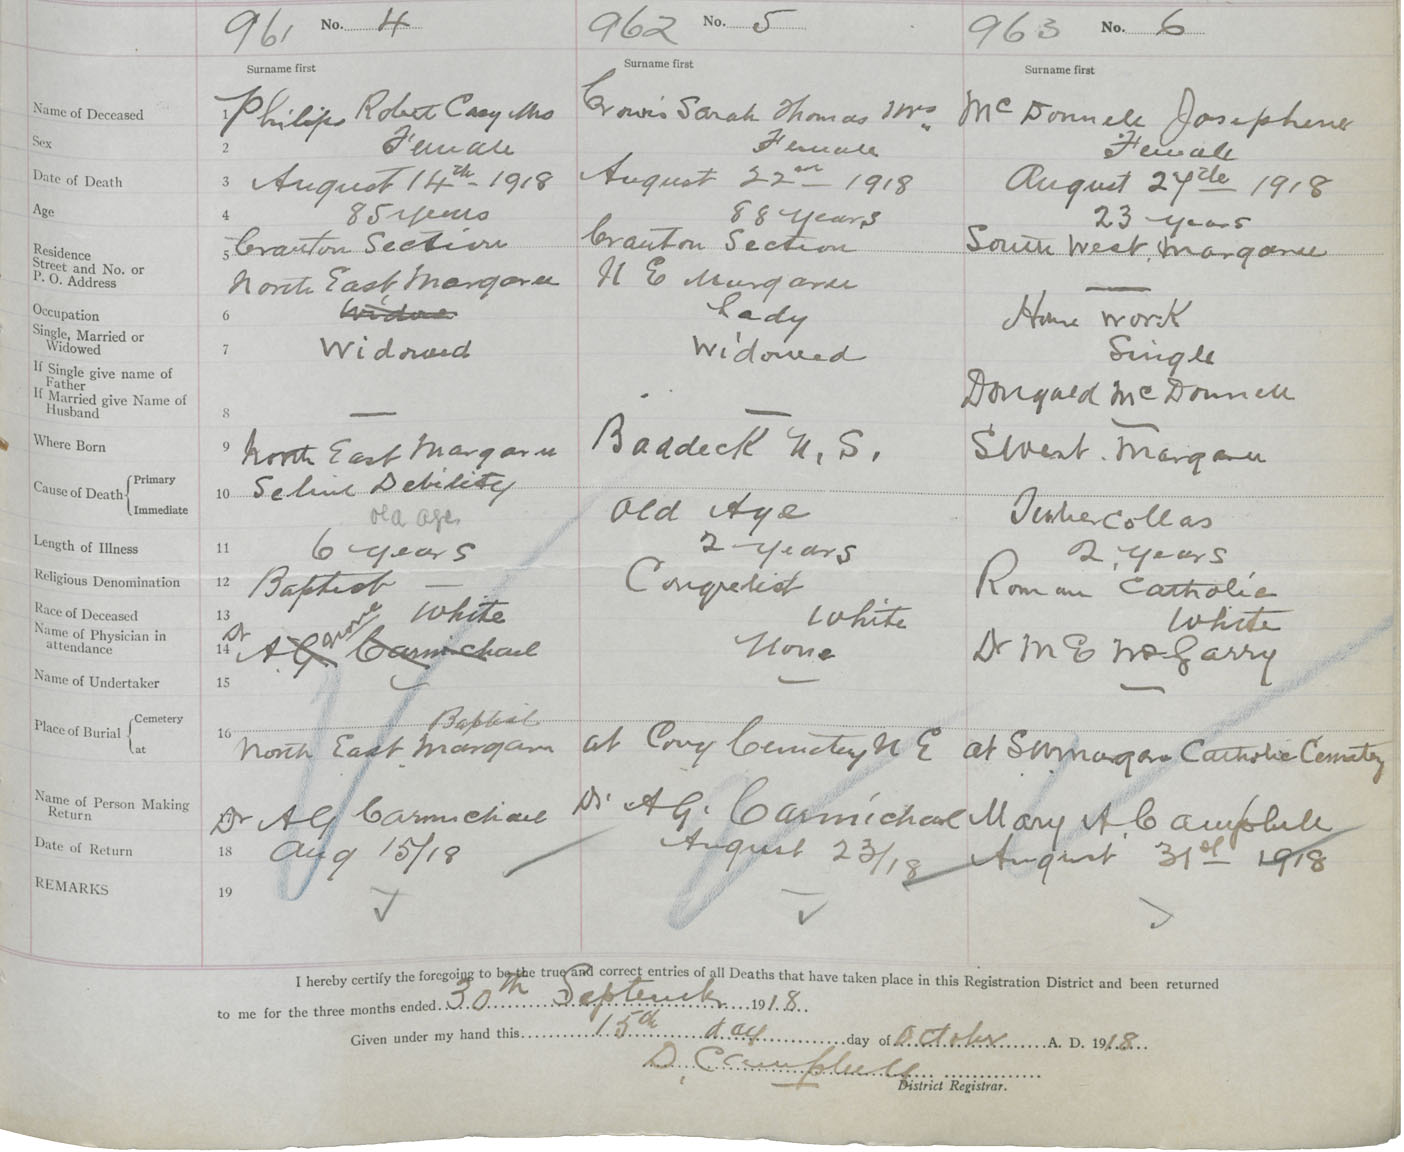 961 No. 4 962 No. 5 963 No. 6
Surname first Surname first Surname first
Name of Deceased 1 Philips Robert Casey Mrs Crowis Sarah Thomas Mrs McDonnell Josephine
Sex 2 Female Female Female
Date of Death 3 August 14th - 1918 August 22nd 1918 August 27th 1918
Age 4 85 years 88 years 23 years
Residence Street and No. or P. O. Address 5 Cranton Section Cranton Section South West Margaree
North East Margaree N E Margaree —
Occupation 6 Widow Lady House work
Single, Married or Widowed 7 Widowed Widowed Single
If Single give name of Father
If Married give Name of Husband 8 — — Dongald McDonnell —
Where Born 9 North East Margaree Baddeck N. S. S West. Margaree
Cause of Death Primary 10 Seline Debility
Immediate old age Old Age Tuber collas
Length of Illness 11 6 years 2 years 2 years
Religious Denomination 12 Baptist — Congretist Roman Catholic
Race of Deceased 13 White White White
Name of Physician in attendance 14 Dr A G Carmichael none None Dr M E McGarry
Name of Undertaker 15 — — —
Place of Burial Cemetery at 16 Baptist
North East Margaree at Cong Cemetery N E at S W Margaree Catholic Cemetery
Name of Person Making Return 17 Dr A G Carmichael Dr A G. Carmichael Mary A. Campbell
Date of Return 18 Aug 15/18 August 23/18 August 31st 1918
REMARKS 19
I hereby certify the foregoing to be the true and correct entries of all Deaths that have taken place in this Registration District and been returned
to me for the three months ended 30th September 1918.
Given under my hand this 15th day day of October A. D. 1918
D. Campbell
District Registrar.